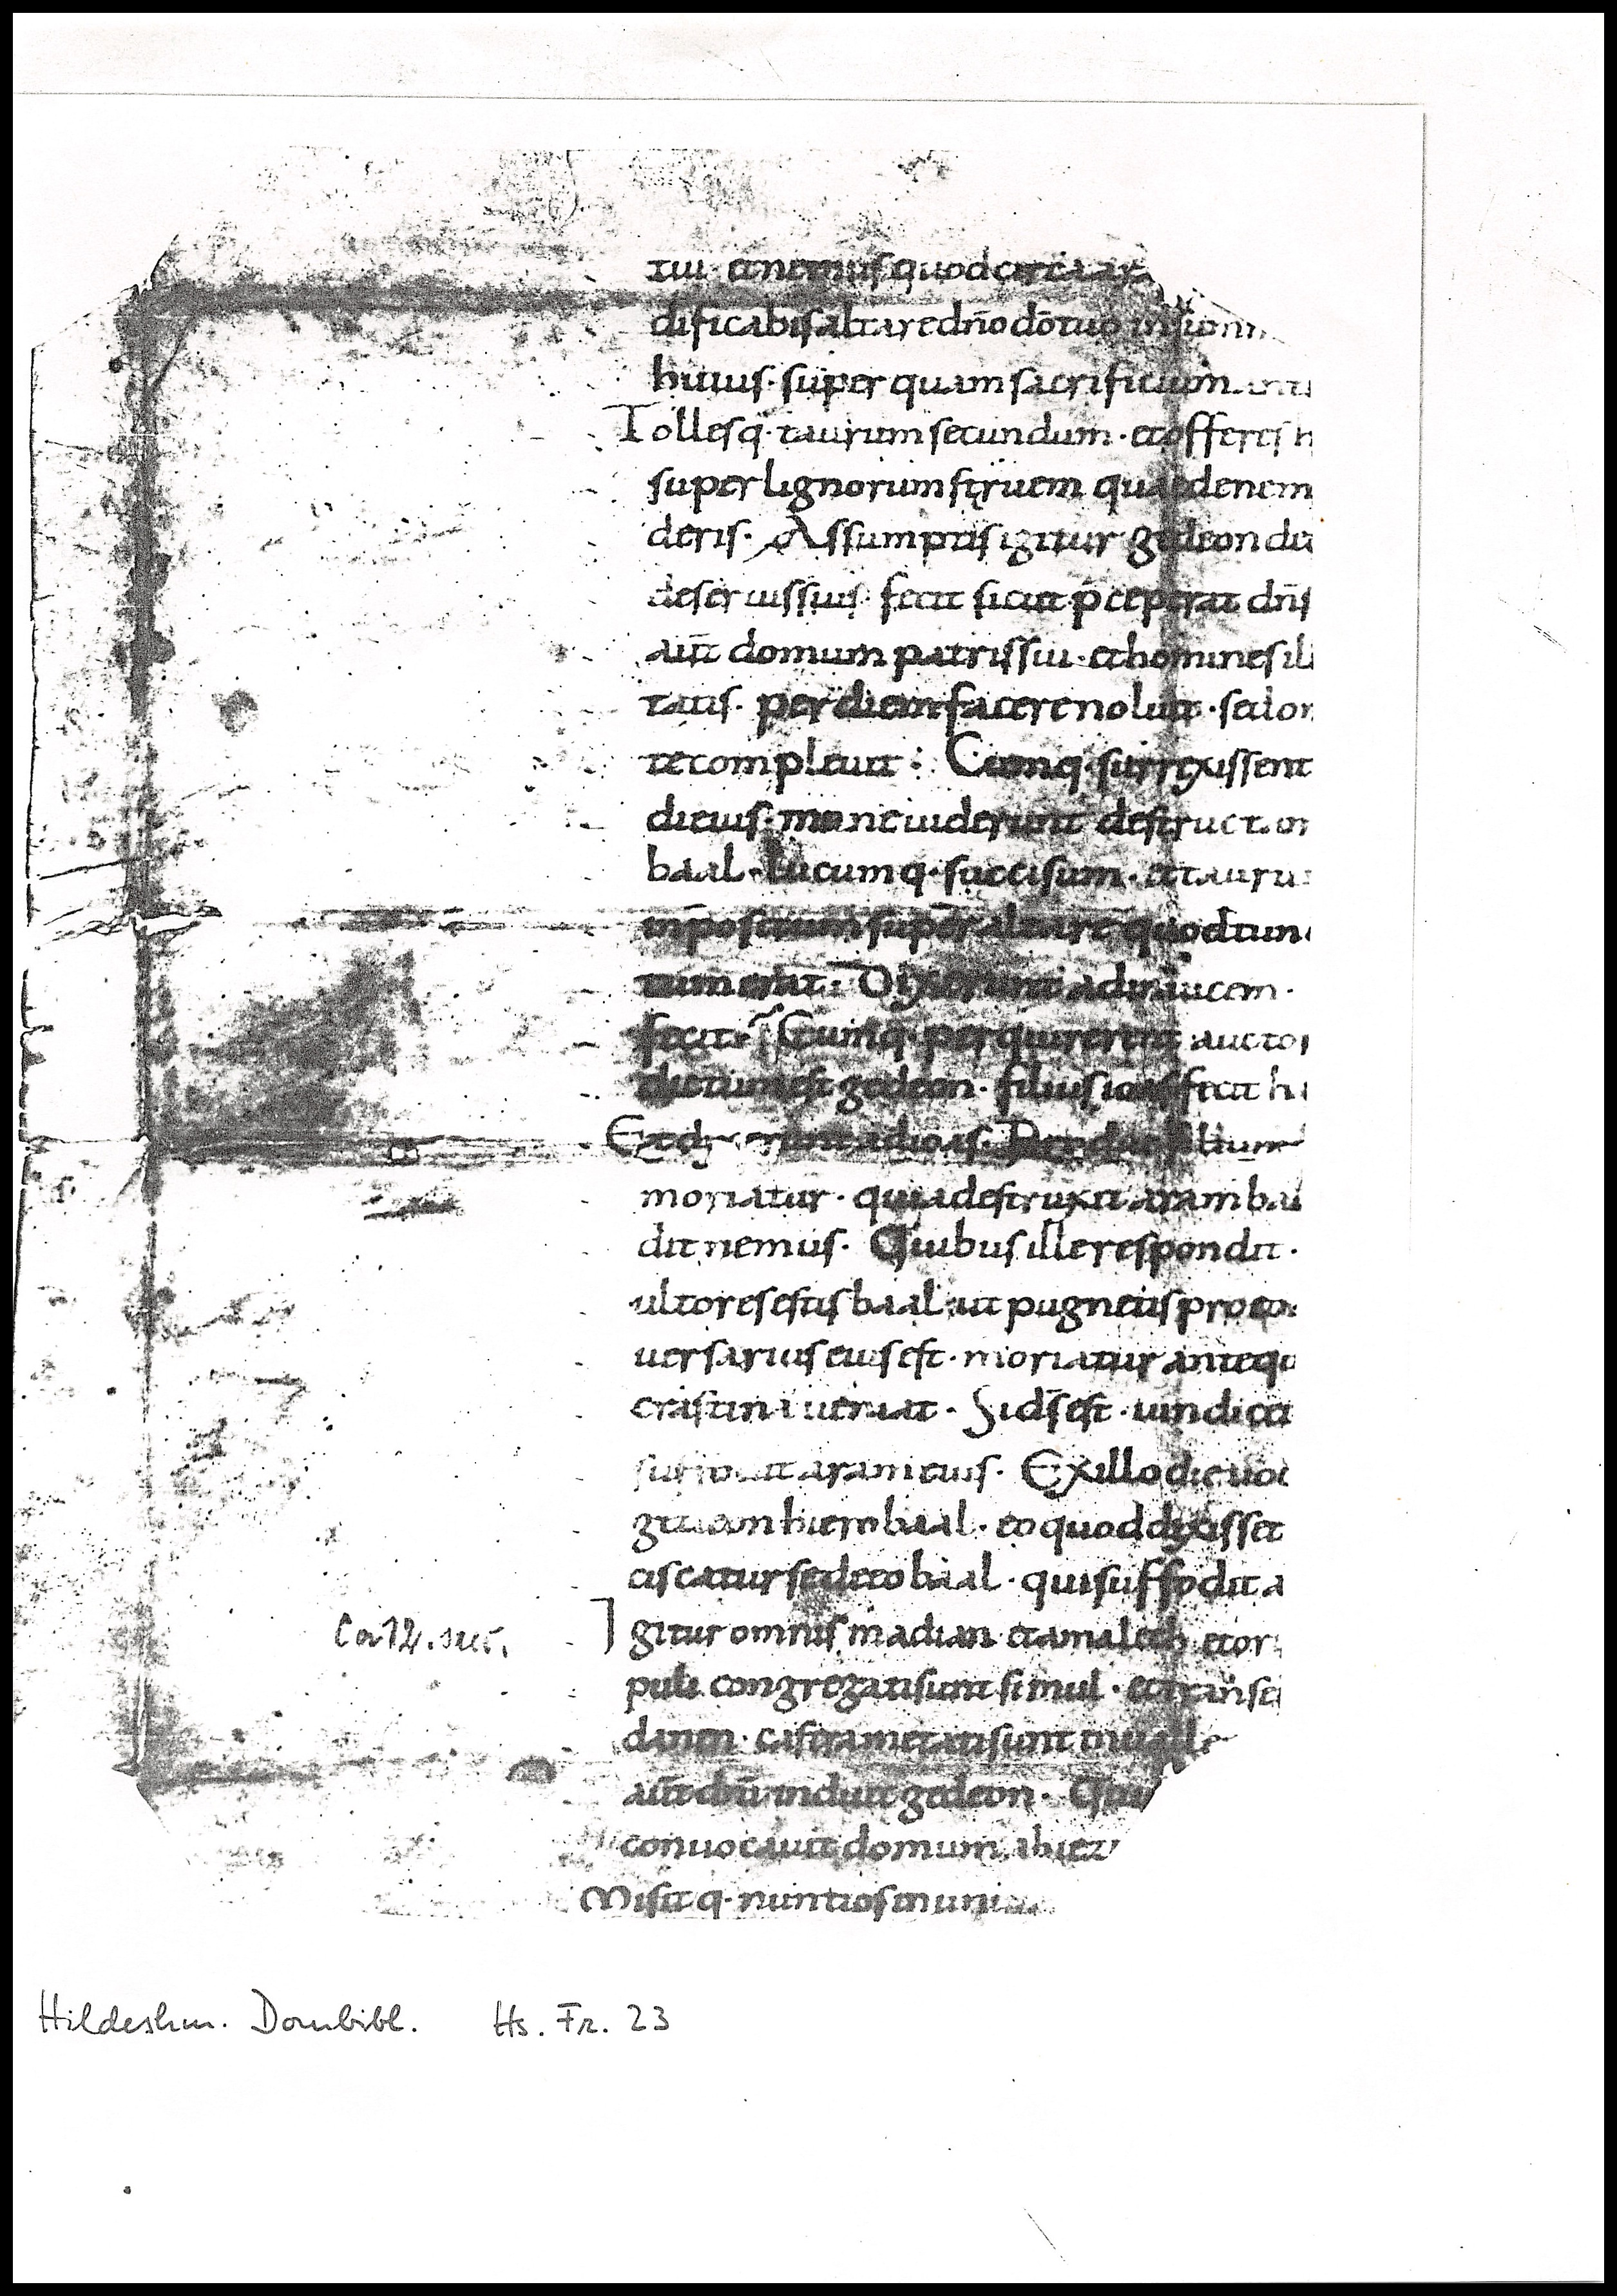 tui · et nemus quod circa ar
dificabis altare dño dõ tuo in summ
huius · super quam sacrificium
Tollesq· taurum secundum · et offeres h
super lignorum struem quae de nem
deris · Assumptis igitur gedeon de
deser uissuis · fecit sicut p̄ceperat dñs
aut̄ domum patris sui · et homines ill
tatis · per diem facere noluit · sed om
te compleuit : Cumq· surrexissent
dieuis · mane uiderunt destructam
baal · lucumq· succisum · et tauru
inpositum super altare quod tunc
tum erat · Dixerunt ad inuicem ·
fecit · Cumq· perquirerent aucto
dictum est gedeon · filius ioas fecit h
Et dixerunt ad ioas · Produc filium
moriatur · quia destruxit aram ba
dit nemus · Quibus ille respondit ·
ultores estis baal ut pugnetis pro eo
uersarius eius est · moriatur anteq
crastina ueniat · Si dš est · uindicet
suffodit aram eius · Ex illo die uoc
gedeon hierobaal · eo quod dixisset
ciscatur se de eo baal · qui suffodit a
Ca 12. suc.
] gitur omnis madian et amalech · et or
puli congregati sunt simul · et transe
danen · castrametati sunt in ualle
aut̄ dñi induit gedeon · Qui
conuocauit domum abiez
Misitq· nuntios in uni
Hildeshm. Dombibl. Hs. Fr. 23